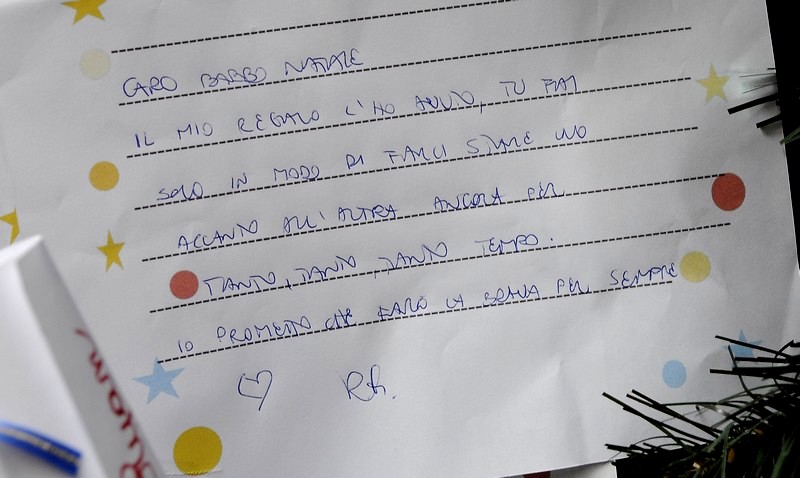 CARO BABBO NATALE
IL MIO REGALO L'HO AVUTO, TU FAI
SOLO IN MODO DI FARCI STARE UNO
ACCANTO ALL'ALTRA ANCORA PER
TANTO, TANTO, TANTO TEMPO.
IO PROMETTO CHE FARO LA BRAVA PER SEMPRE
♡ Rh.